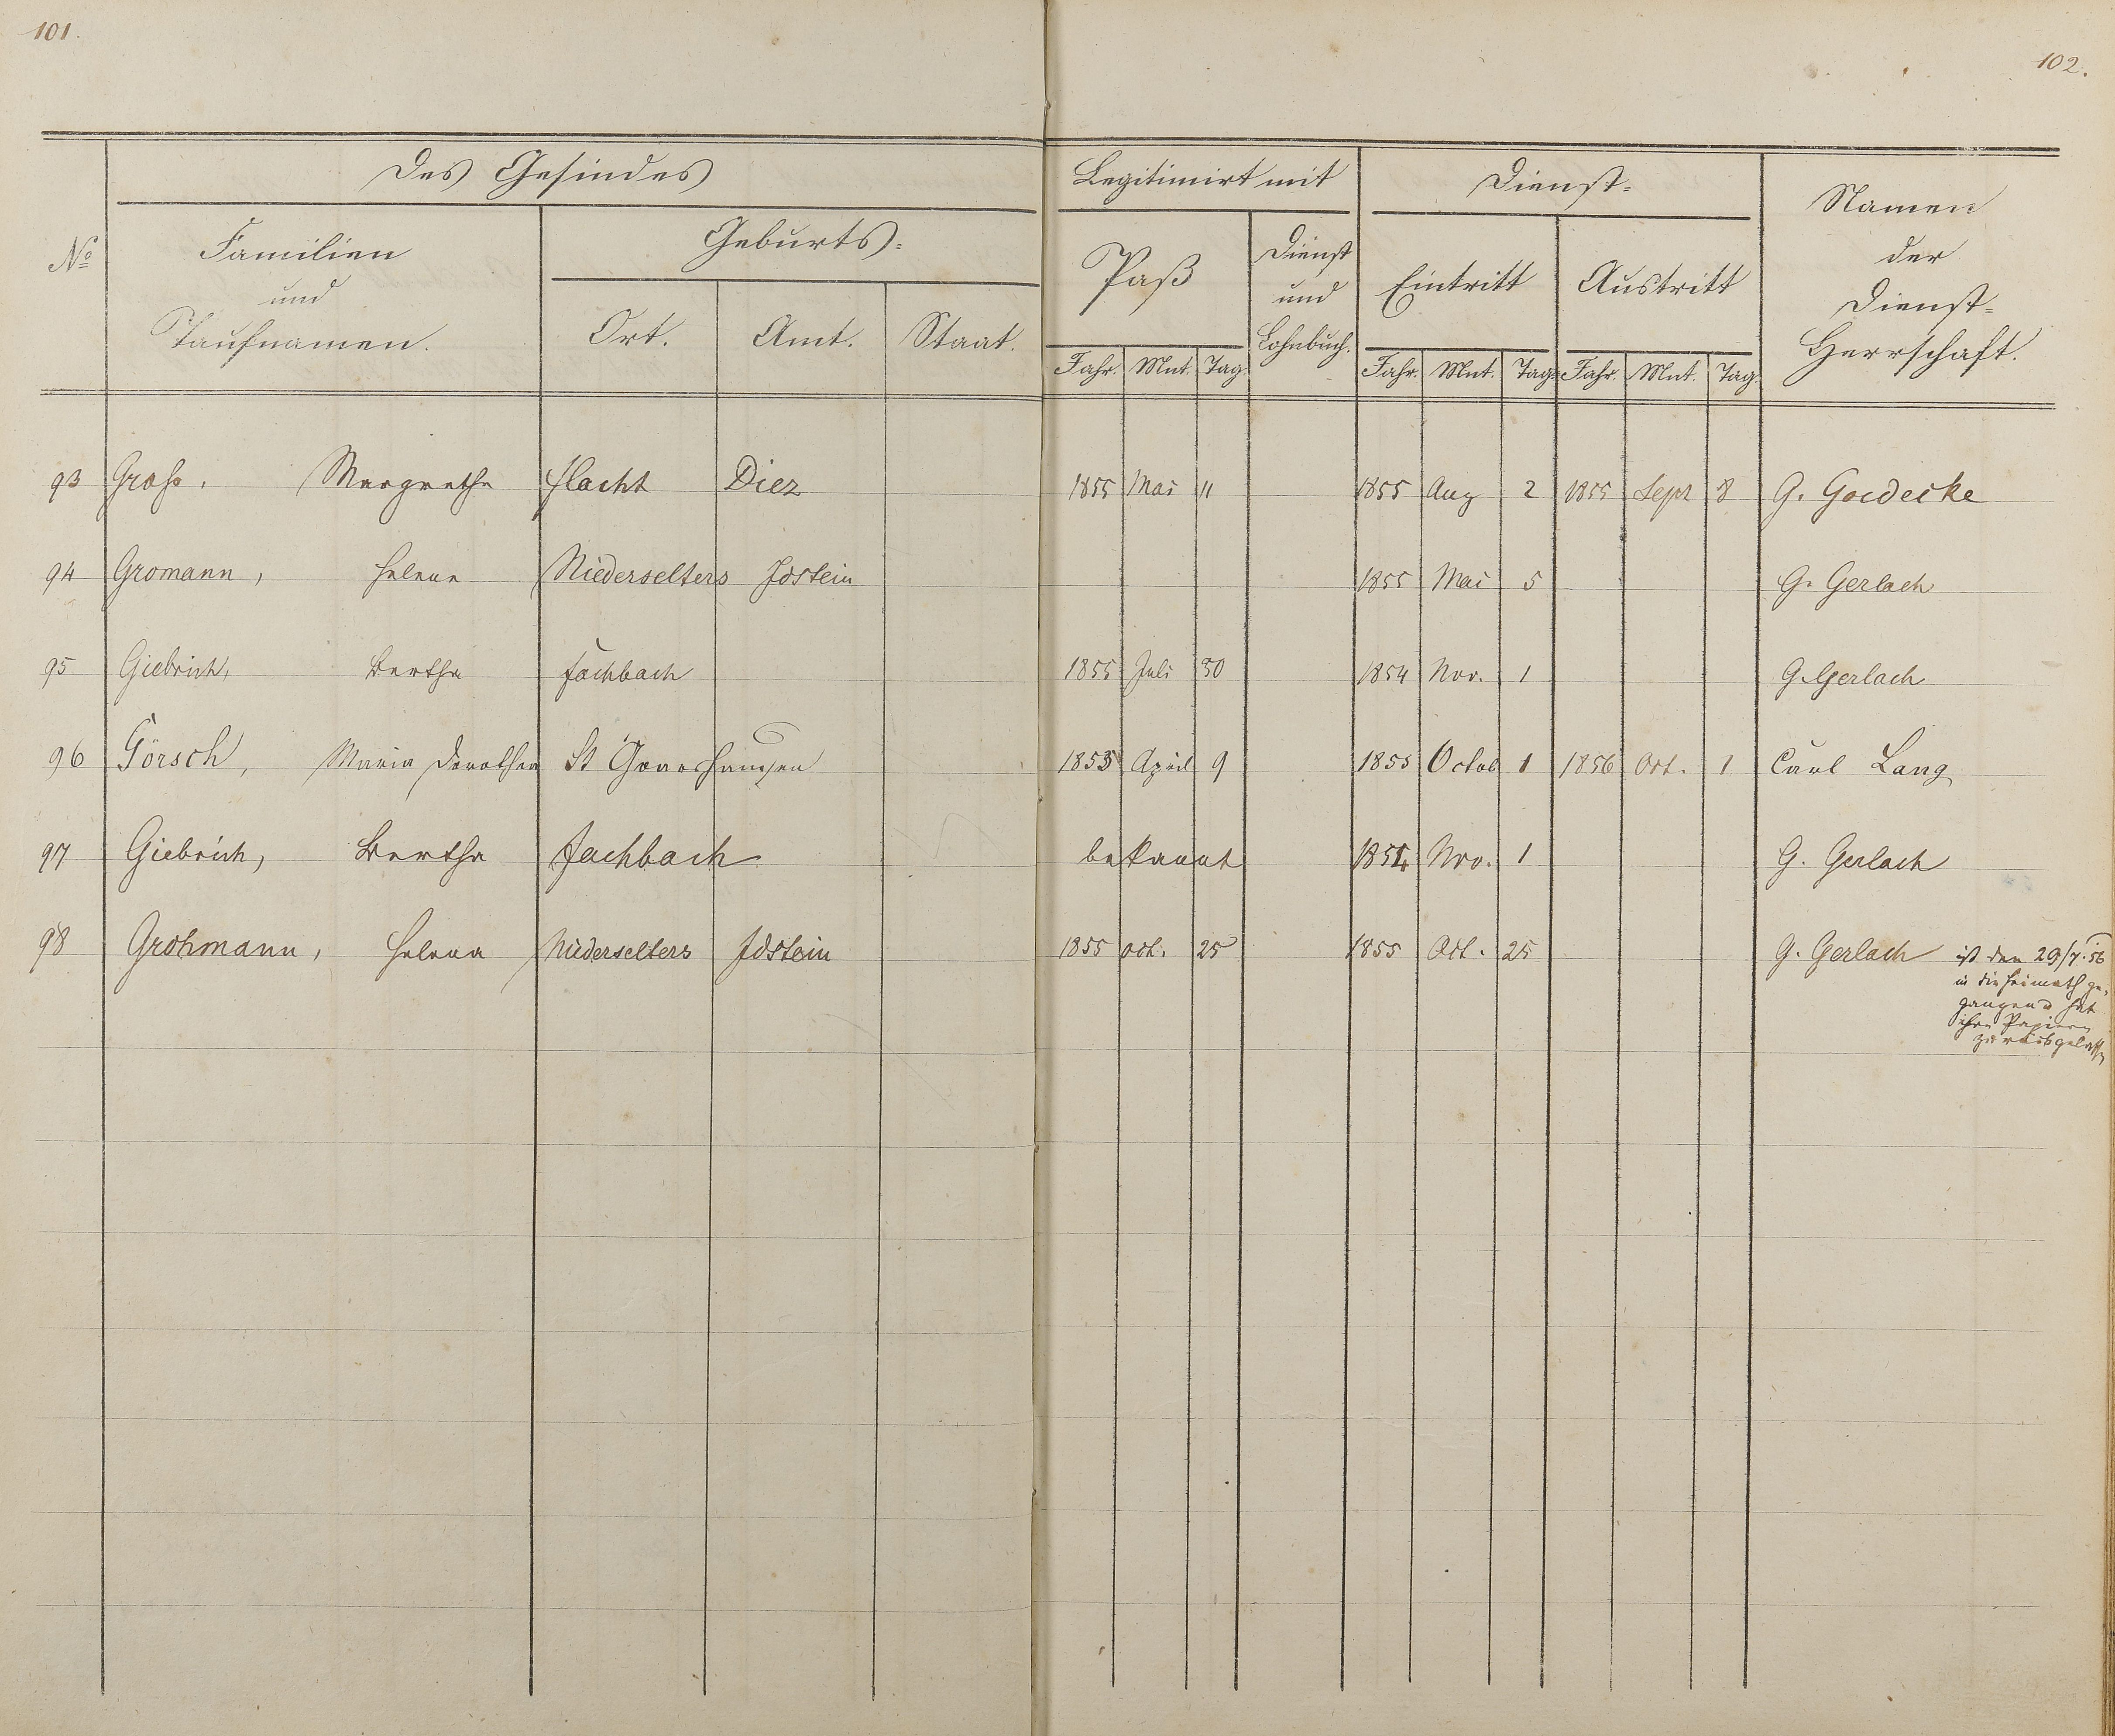 101.
102.
Des Gesindes
Legitimirt mit
Dienst-
Namen
der
Dienst-
Herrschaft.
No
Familien
und
Taufnamen.
Geburts-
Ort. Amt. Staat.
Paß
Dienst
und
Lohnbuch.
Eintritt Austritt
Jahr. Mnt. Tag. Jahr. Mnt. Tag. Jahr. Mnt. Tag.
93 Groß, Margrethe Flacht Diez 1855 Mai 11 1855 Aug 2 1855 Sept 8 G. Goedecke
94 Gromann, Helene Niederselters Idstein 1855 Mai 5 G. Gerlach
95 Giebrich, Bertha Fachbach 1855 Juli 30 1854 Nov. 1 G. Gerlach
96 Görsch, Maria Dorothea St Goarshausen 1853 April 9 1855 Octob 1 1856 Oct. 1 Carl Lang
97 Giebrich, Bertha Fachbach bekannt 1854 Nov. 1 G. Gerlach
98 Grohmann, Helena Niederselters Idstein 1855 Oct. 25 1855 Oct. 25 G. Gerlach ist den 29/7. 56
in die Heimath ge-
gangen u hat
ihre Papiere
zurückgelassen